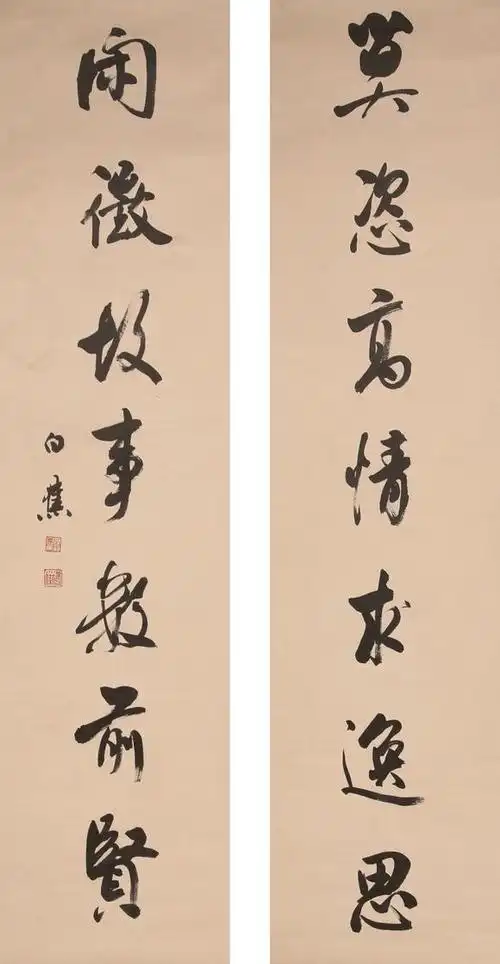 莫恣高情求逸思
閑徵故事數前賢
白蕉